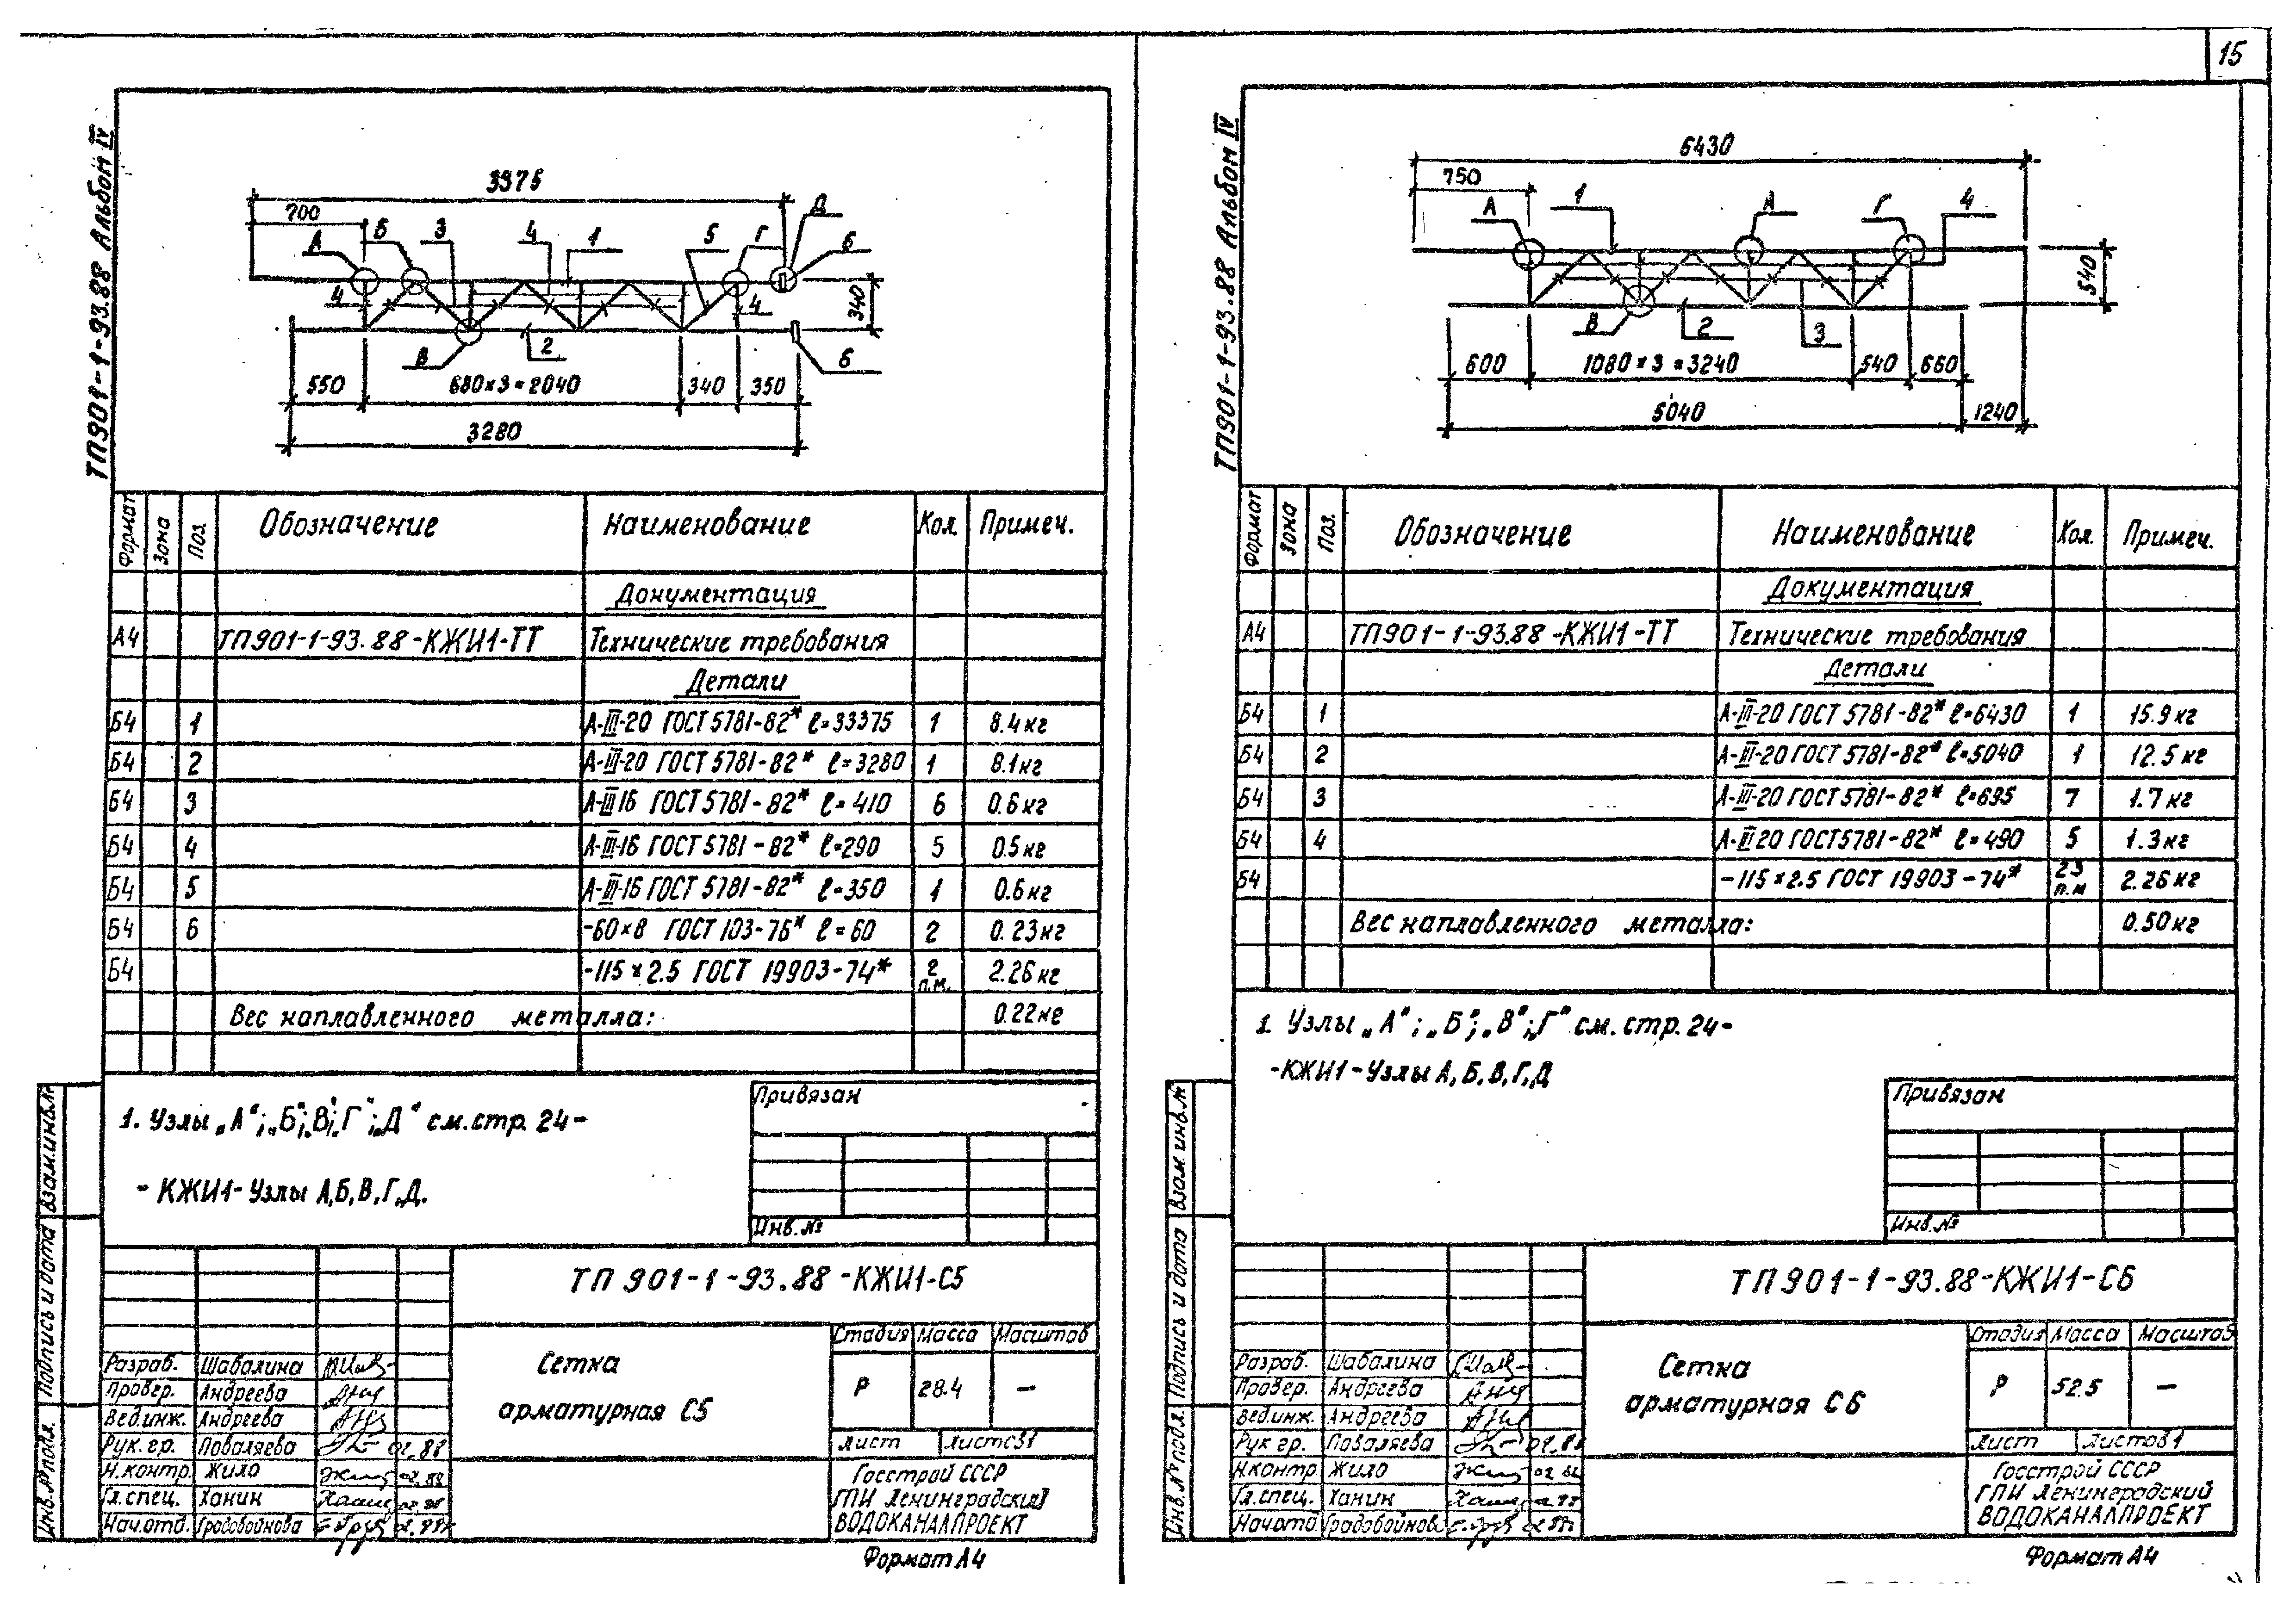 15
ТП901-1-93.88 Альбом IV
3375
700
А
Б
3
4
1
5
Г
Д
6
4
4
340
В
2
6
550
680×3=2040
340
350
3280
Формат
Зона
Поз.
Обозначение
Наименование
Кол.
Примеч.
Документация
А4 ТП901-1-93.88-КЖИ1-ТТ Технические требования
Детали
Б4 1 А-III-20 ГОСТ 5781-82* ℓ=33375 1 8.4кг
Б4 2 А-III-20 ГОСТ 5781-82* ℓ=3280 1 8.1кг
Б4 3 А-III16 ГОСТ 5781-82* ℓ=410 6 0.6кг
Б4 4 А-III-16 ГОСТ 5781-82* ℓ=290 5 0.5кг
Б4 5 А-III-16 ГОСТ 5781-82* ℓ=350 1 0.6кг
Б4 6 -60×8 ГОСТ 103-76* ℓ=60 2 0.23кг
Б4 -115×2.5 ГОСТ 19903-74* 2 п.м. 2.26кг
Вес наплавленного металла: 0.22кг
1. Узлы „А";„Б";„В";„Г";„Д" см.стр.24-
-КЖИ1-Узлы А,Б,В,Г,Д.
Привязан
Инв.№
Взам.инв.№
Подпись и дата
Инв.№ подл.
ТП 901-1-93.88-КЖИ1-С5
Сетка
арматурная С5
Стадия Масса Масштаб
Р 28.4 —
Лист Листов1
Разраб. Шабалина
Провер. Андреева
Вед.инж. Андреева
Рук.гр. Поваляева 02.88
Н.контр. Жило 02.88
Гл.спец. Ханин 02.88
Нач.отд. Градобойнова
Госстрой СССР
ГПИ Ленинградский
ВОДОКАНАЛПРОЕКТ
Формат А4
ТП901-1-93.88 Альбом IV
6430
750
А
1
А
Г
4
540
В
2
3
600
1080×3=3240
540
660
5040
1240
Формат
Зона
Поз.
Обозначение
Наименование
Кол.
Примеч.
Документация
А4 ТП901-1-93.88-КЖИ1-ТТ Технические требования
Детали
Б4 1 А-III-20 ГОСТ 5781-82* ℓ=6430 1 15.9кг
Б4 2 А-III-20 ГОСТ 5781-82* ℓ=5040 1 12.5кг
Б4 3 А-III-20 ГОСТ 5781-82* ℓ=695 7 1.7кг
Б4 4 А-III20 ГОСТ 5781-82* ℓ=490 5 1.3кг
Б4 -115×2.5 ГОСТ 19903-74* п.м 2.26кг
Вес наплавленного металла: 0.50кг
1. Узлы „А";„Б";„В";„Г" см.стр.24-
-КЖИ1-Узлы А,Б,В,Г,Д
Привязан
Инв.№
Взам.инв.№
Подпись и дата
Инв.№ подл.
ТП901-1-93.88-КЖИ1-С6
Сетка
арматурная С6
Стадия Масса Масштаб
Р 52.5 —
Лист Листов1
Разраб. Шабалина
Провер. Андреева
Вед.инж. Андреева
Рук гр. Поваляева
Н.контр. Жило
Гл.спец. Ханин
Нач.отд. Градобойнова
Госстрой СССР
ГПИ Ленинградский
ВОДОКАНАЛПРОЕКТ
Формат А4